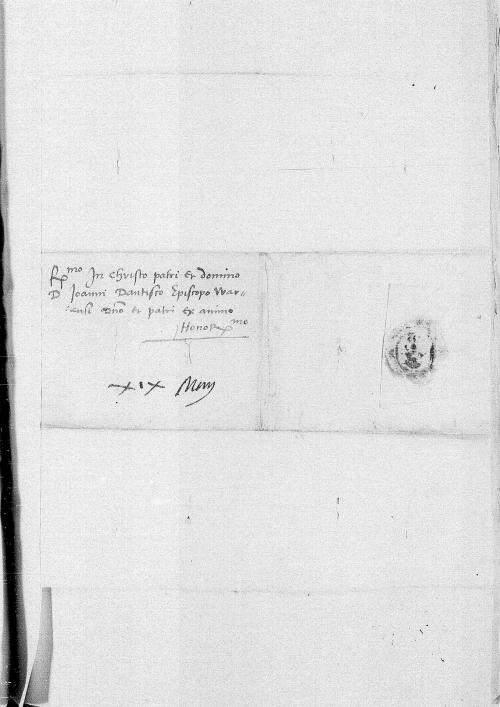 R^mo In Christo patri et domino
D Joanni Dantisco Episcopo War=
mensi Dno et patri ex animo
Honor^mo
XIX Maij